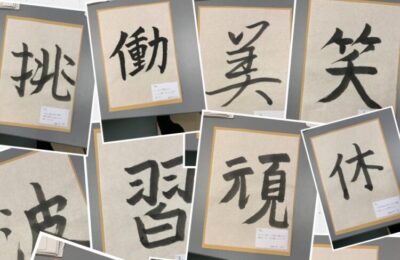 挑
働
美
笑
波
習
頑
休